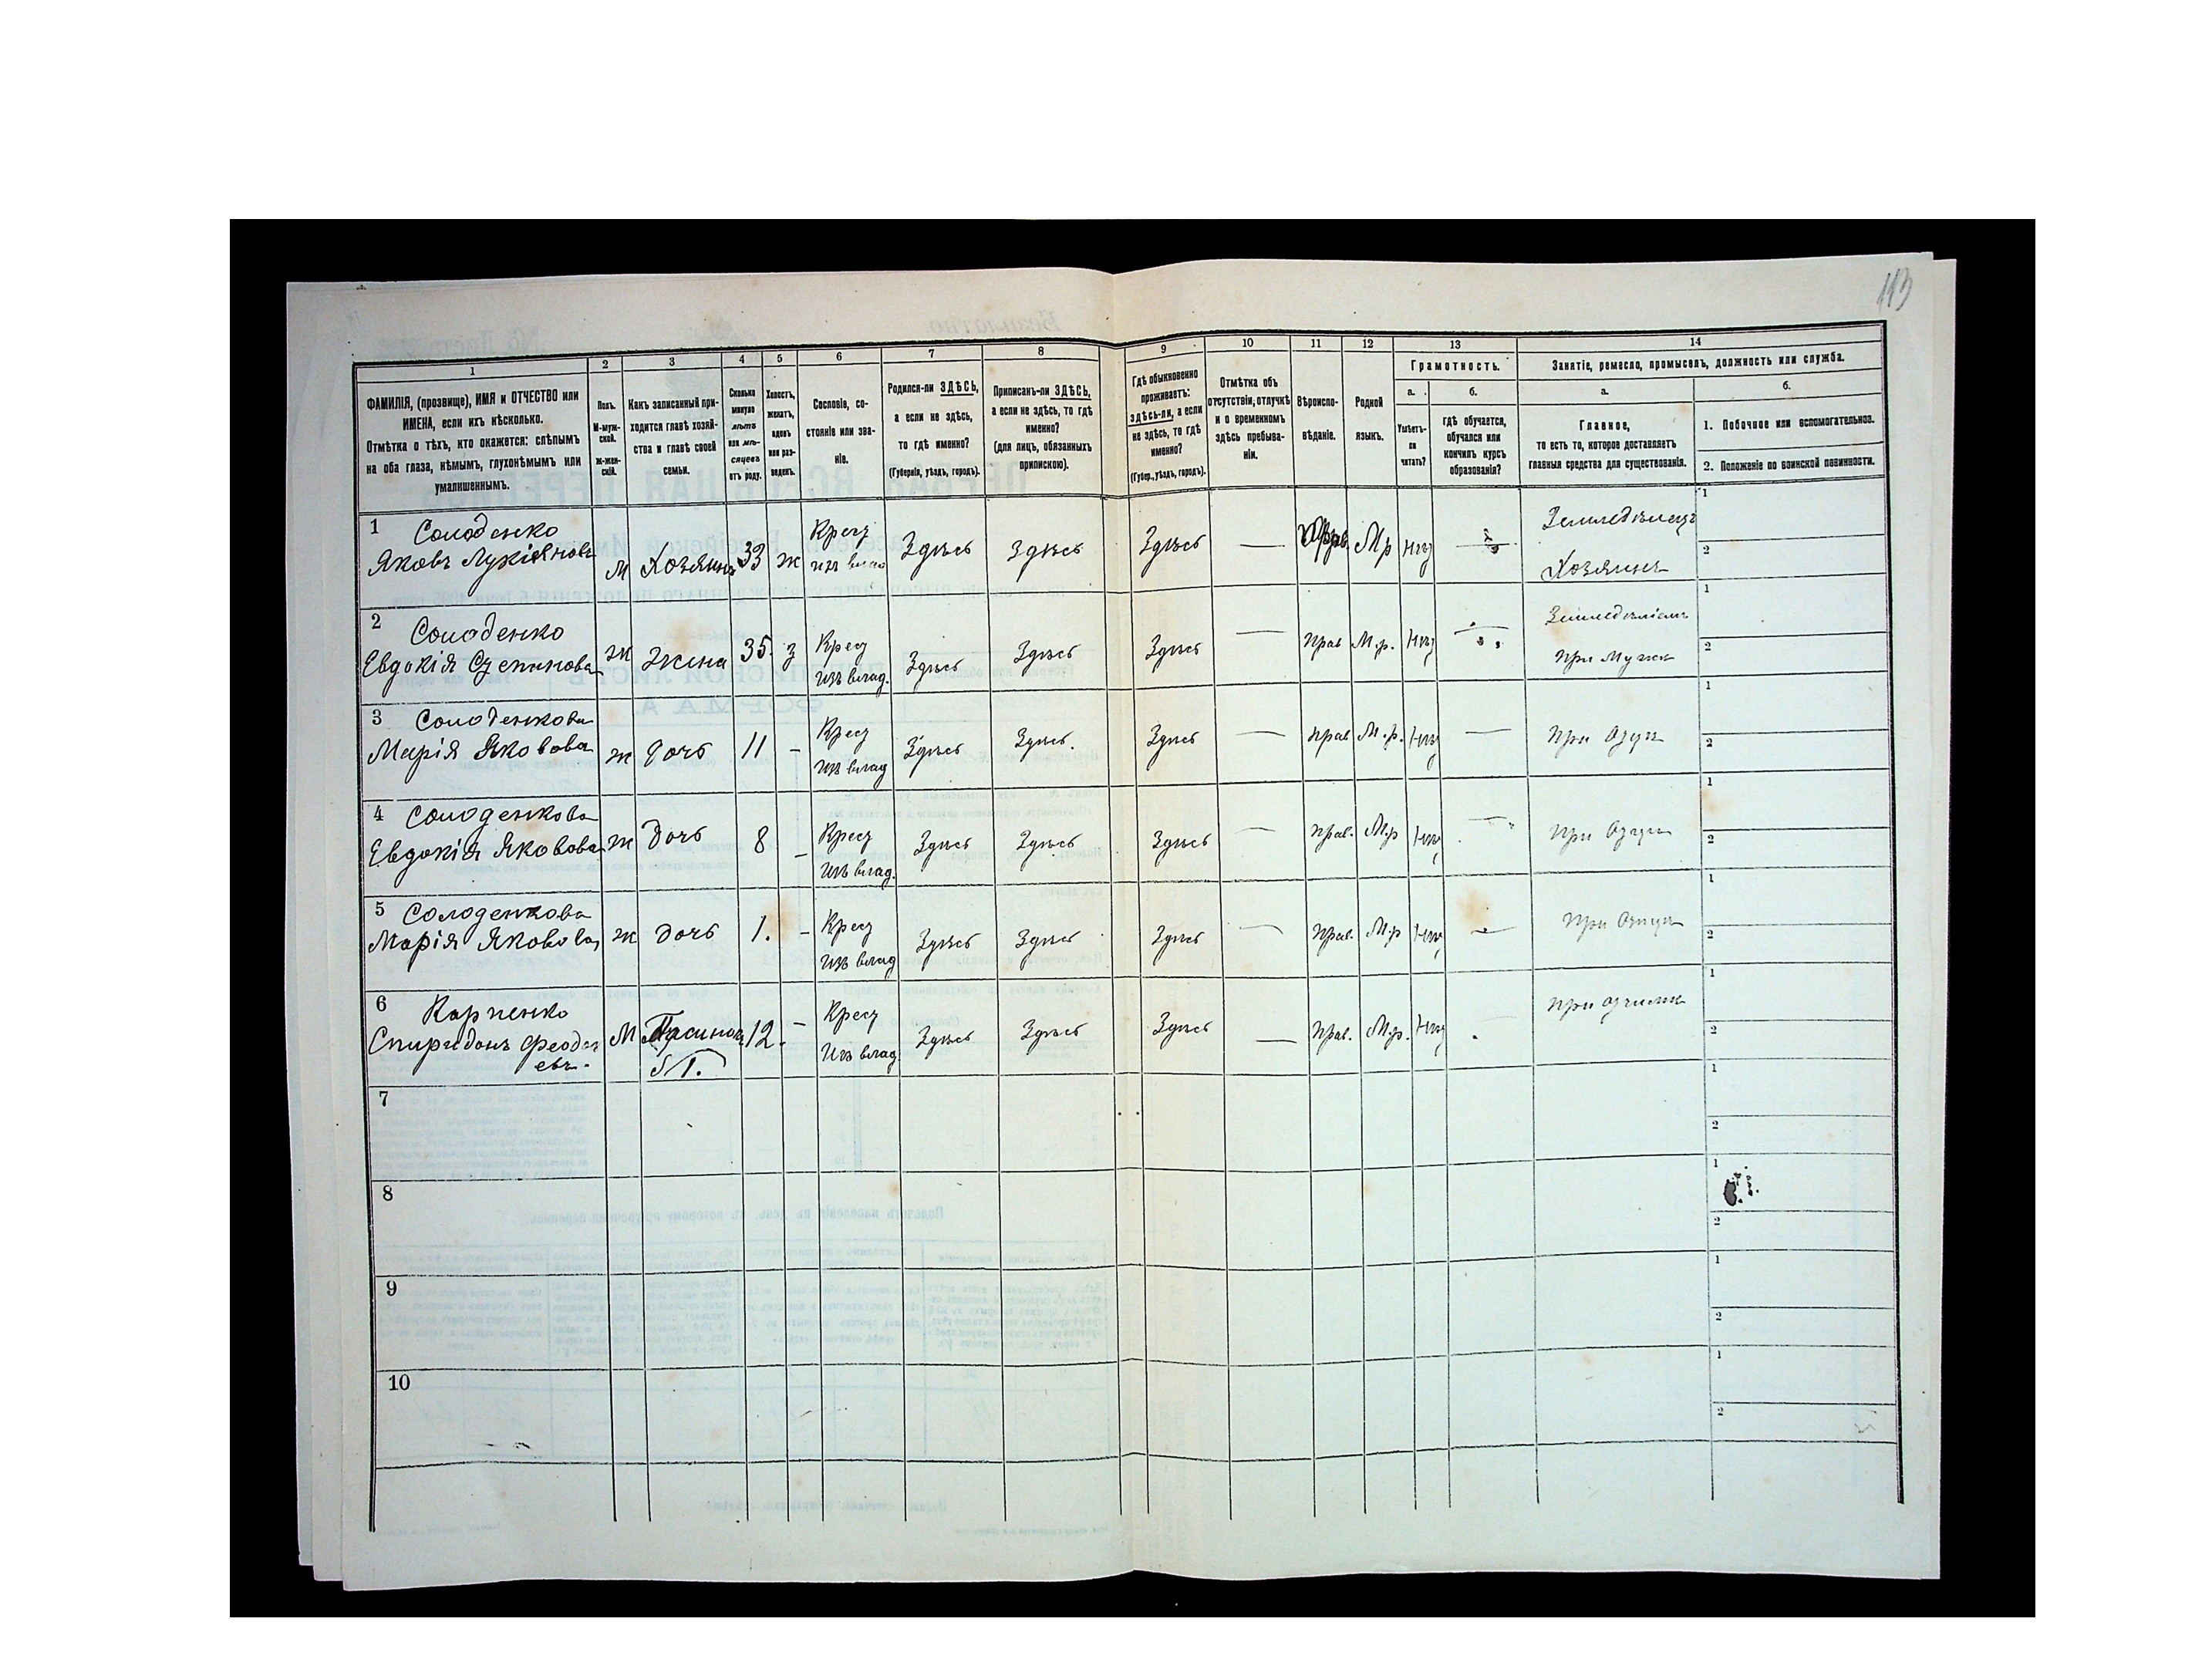 113
1
2
3
4
5
6
7
8
9
10
11
12
13
14
ФАМИЛІЯ, (прозвище), ИМЯ и ОТЧЕСТВО или
ИМЕНА, если ихъ нѣсколько.
Отмѣтка о тѣхъ, кто окажется: слѣпымъ
на оба глаза, нѣмымъ, глухонѣмымъ или
умалишеннымъ.
Полъ.
М-муж-
ской.
Ж-жен-
скій.
Какъ записанный при-
ходится главѣ хозяй-
ства и главѣ своей
семьи.
Сколько
минуло
лѣтъ
или мѣ-
сяцевъ
отъ роду.
Холостъ,
женатъ,
вдовъ
или раз-
веденъ.
Сословіе, со-
стояніе или зва-
ніе.
Родился-ли ЗДѢСЬ,
а если не здѣсь,
то гдѣ именно?
(Губернія, уѣздъ, городъ).
Приписанъ-ли ЗДѢСЬ,
а если не здѣсь, то гдѣ
именно?
(для лицъ, обязанныхъ
припискою).
Гдѣ обыкновенно
проживаетъ:
здѣсь-ли, а если
не здѣсь, то гдѣ
именно?
(Губер., уѣздъ, городъ).
Отмѣтка объ
отсутствіи, отлучкѣ
и о временномъ
здѣсь пребыва-
ніи.
Вѣроиспо-
вѣданіе.
Родной
языкъ.
Грамотность.
а.
Умѣетъ-
ли
читать?
б.
гдѣ обучается,
обучался или
кончилъ курсъ
образованія?
Занятіе, ремесло, промыселъ, должность или служба.
а.
Главное,
то есть то, которое доставляетъ
главныя средства для существованія.
б.
1. Побочное или вспомогательное.
2. Положеніе по воинской повинности.
1 Солоденко
Яковъ Лукіяновъ
М Хозяинъ 33 ж
Крест
изъ влад
Здѣсь Здѣсь Здѣсь — Прав. Мр нѣт
Земледѣлецъ
Хозяинъ
1
2
2 Солоденко
Евдокія
ж жена 35. з
Крест
изъ влад.
Здѣсь Здѣсь Здѣсь — прав М.р. Нѣт
Земледѣліемъ
при мужѣ
1
2
3 Солоденкова
Марія Яковова
ж дочь 11 —
Крест
изъ влад
Здѣсь Здѣсь. Здѣсь — прав М.р. Нѣт —
при отцѣ
1
2
4 Солоденкова
Евдокія Яковова
ж Дочь 8 —
Крест
изъ влад.
Здѣсь Здѣсь Здѣсь — прав. М.р Нѣт —
при отцѣ
1
2
5 Солоденкова
Марія Яковова
ж дочь 1. —
Крест
изъ влад
Здѣсь Здѣсь Здѣсь — прав. М.р Нѣт —
при отцѣ
1
2
6 Карпенко
Спиридонъ Феодо
евъ.
М Пасинок 12. —
Крест
Изъ влад.
Здѣсь Здѣсь Здѣсь — прав. М.р. Нѣт
при отчимѣ
1
2
7
1
2
8
1
2
9
1
2
10
1
2